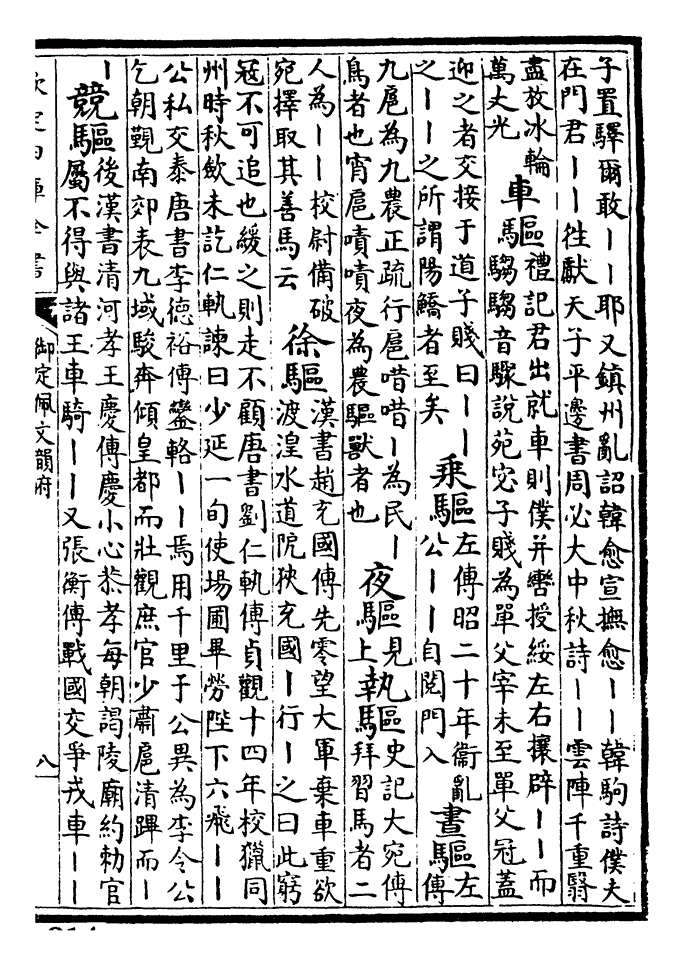 子置驛爾敢丨丨耶又鎮州亂詔韓愈宣撫愈丨丨韓駒詩僕夫
在門君丨丨徃獻天子平邊書周必大中秋詩丨丨雲陣千重翳
盡放冰輪
萬丈光
車驅
禮記君出就車則僕并轡授綏左右攘辟丨丨而
騶騶音驟說苑宓子賤為單父宰未至單父冠蓋
迎之者交接于道子賤曰丨丨
之丨丨之所謂陽鱎者至矣
乘驅
左傳昭二十年衞亂
公丨丨自閱門入
晝驅
左
傳
九扈為九農正疏行扈唶唶丨為民丨
鳥者也宵扈嘖嘖夜為農驅獸者也
夜驅
見
上
執驅
史記大宛傳
拜習馬者二
人為丨丨校尉備破
宛擇取其善馬云
徐驅
漢書趙充國傳先零望大軍棄車重欲
渡湟水道阨狹充國丨行丨之曰此窮
冦不可追也緩之則走不顧唐書劉仁軌傳貞觀十四年校獵同
州時秋斂未訖仁軌諫曰少延一旬使場圃畢勞陛下六飛丨丨
公私交泰唐書李德裕傳鑾輅丨丨焉用千里于公異為李令公
乞朝覲南郊表九域駿奔傾皇都而壯觀庶官少肅扈清蹕而丨
丨
競驅
後漢書清河孝王慶傳慶小心恭孝每朝謁陵廟約勅官
屬不得與諸王車騎丨丨又張衡傳戰國交爭戎車丨丨
欽定四庫全書
御定佩文韻府
八